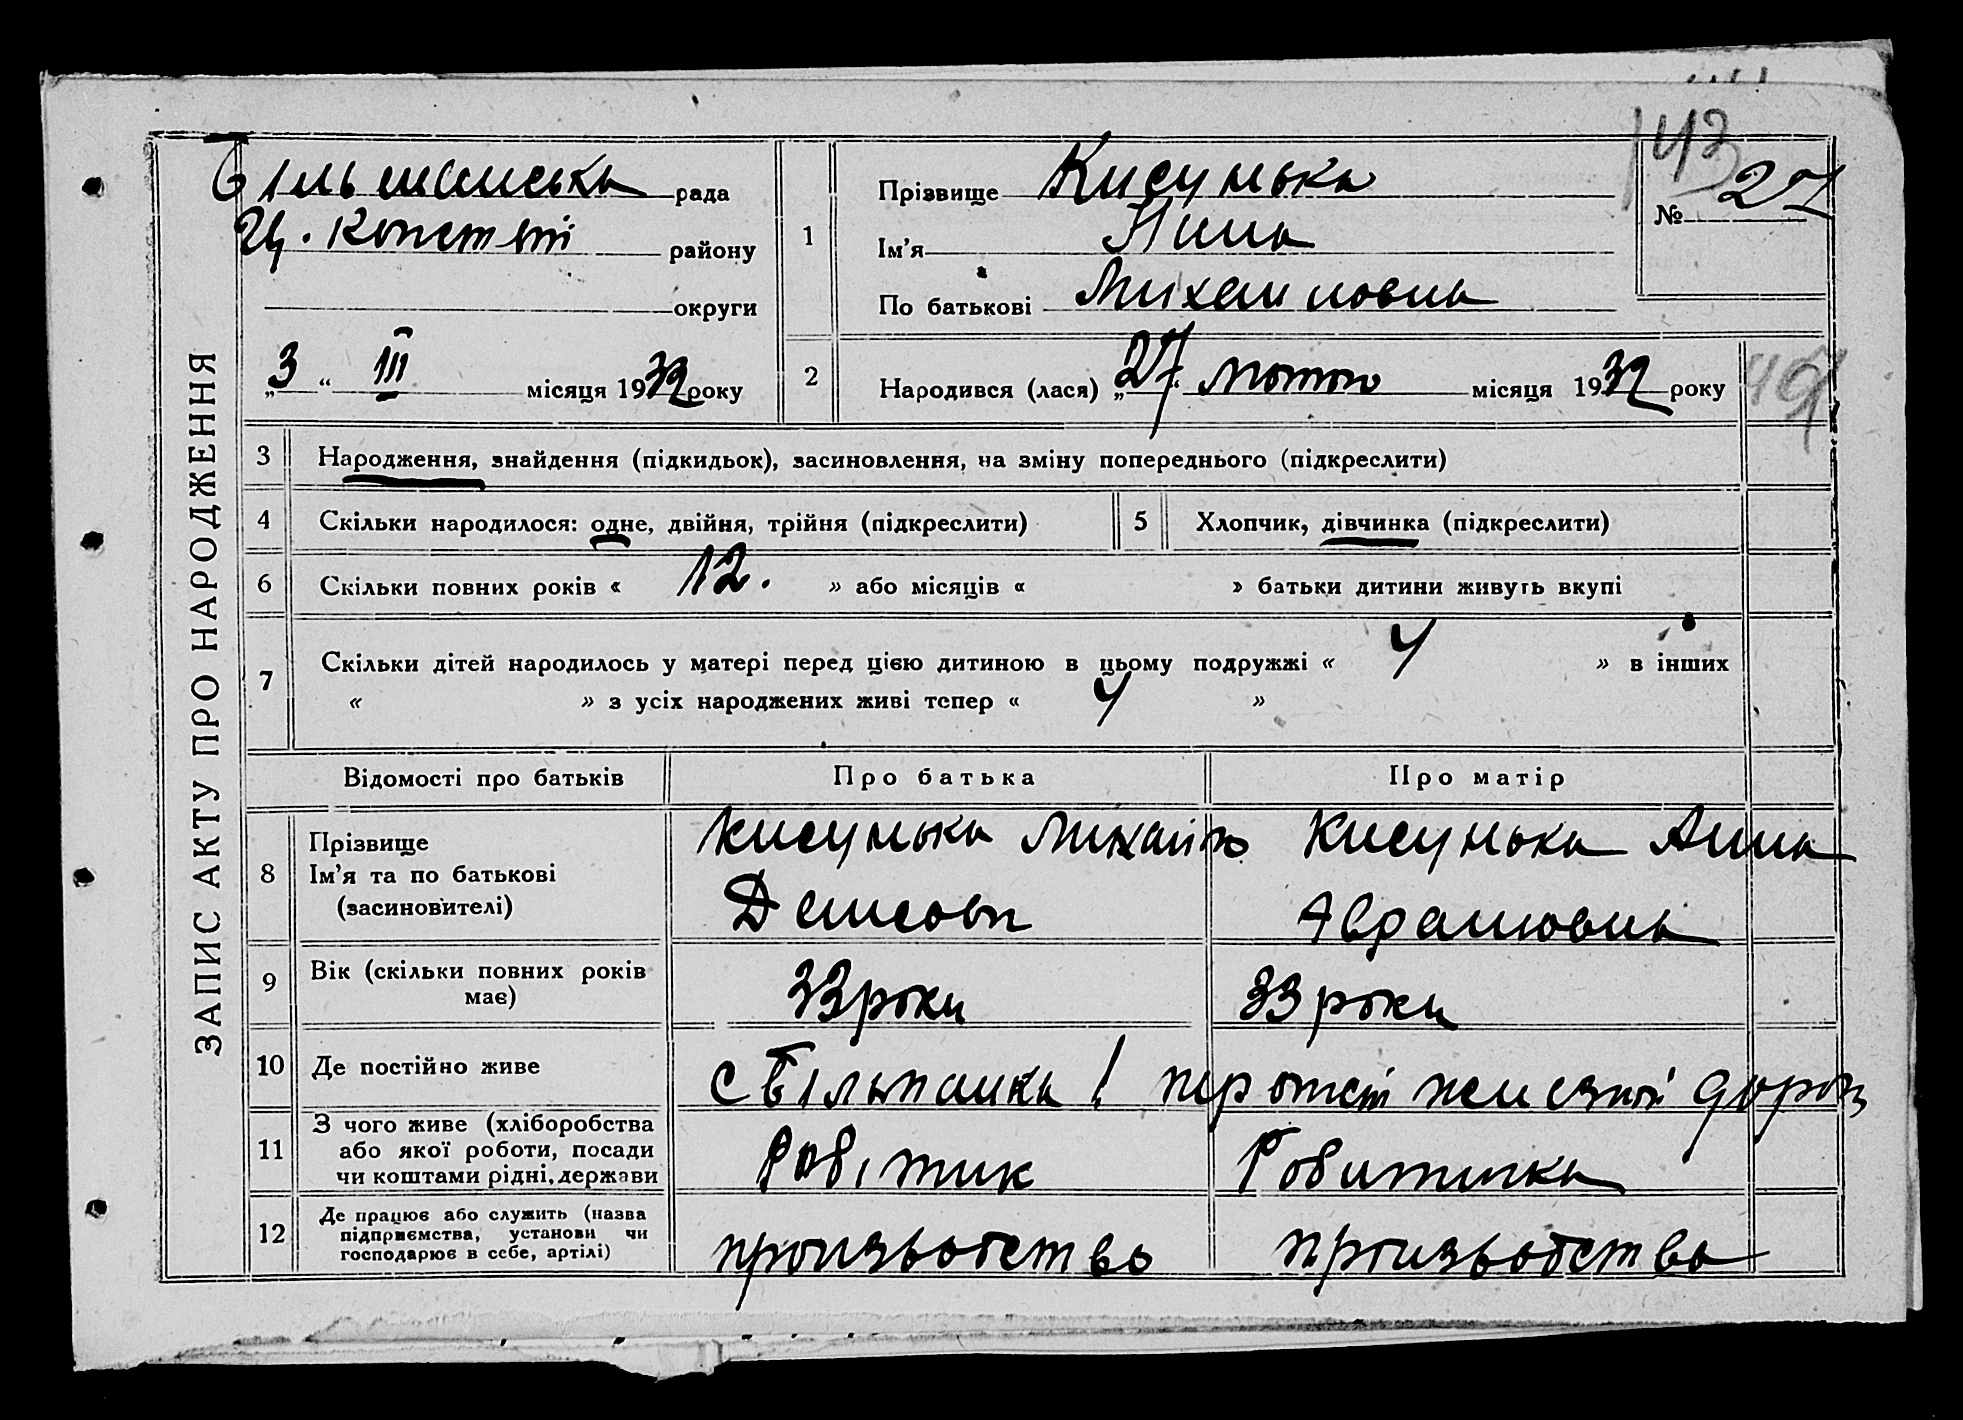 ЗАПИС АКТУ ПРО НАРОДЖЕННЯ
143
рада
района
району
округи
„3“ III місяця 1932 року
1
Прізвище Кисунька
Ім'я Нина
По батькові Михайловна
№ 27
2
Народився (лася) „27“ лютого місяця 1932 року
3 Народження, знайдення (підкидьок), засиновлення, на зміну попереднього (підкреслити)
4 Скільки народилося: одне, двійня, трійня (підкреслити)
5 Хлопчик, дівчинка (підкреслити)
6 Скільки повних років « 12. » або місяців « » батьки дитини живуть вкупі
7 Скільки дітей народилось у матері перед цією дитиною в цьому подружжі « 4 » в інших
« » з усіх народжених живі тепер « 4 »
Відомості про батьків Про батька Про матір
8 Прізвище
Ім'я та по батькові
(засиновителі)
Кисунька Михайло
Денисови
Кисунька Анна
Аврамовна
9 Вік (скільки повних років
має)
33 роки
33 роки
10 Де постійно живе
с
11 З чого живе (хліборобства
або якої роботи, посади
чи коштами рідні, держави
Робітник
Робитниця
12 Де працює або служить (назва
підприємства, установи чи
господарює в себе, артілі)
производство
производства